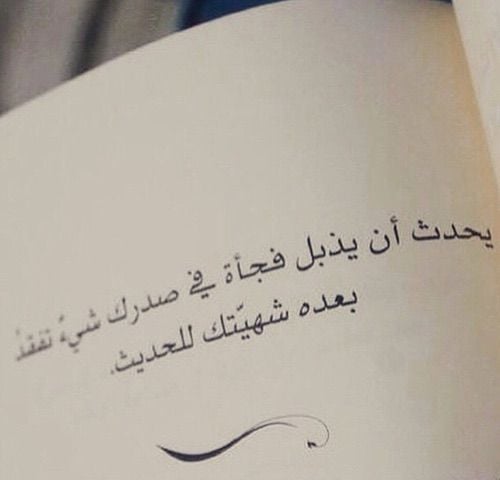 يحدث أن يذبل فجأة في صدرك شيءٌ تفقدُ
بعده شهيّتك للحديث.